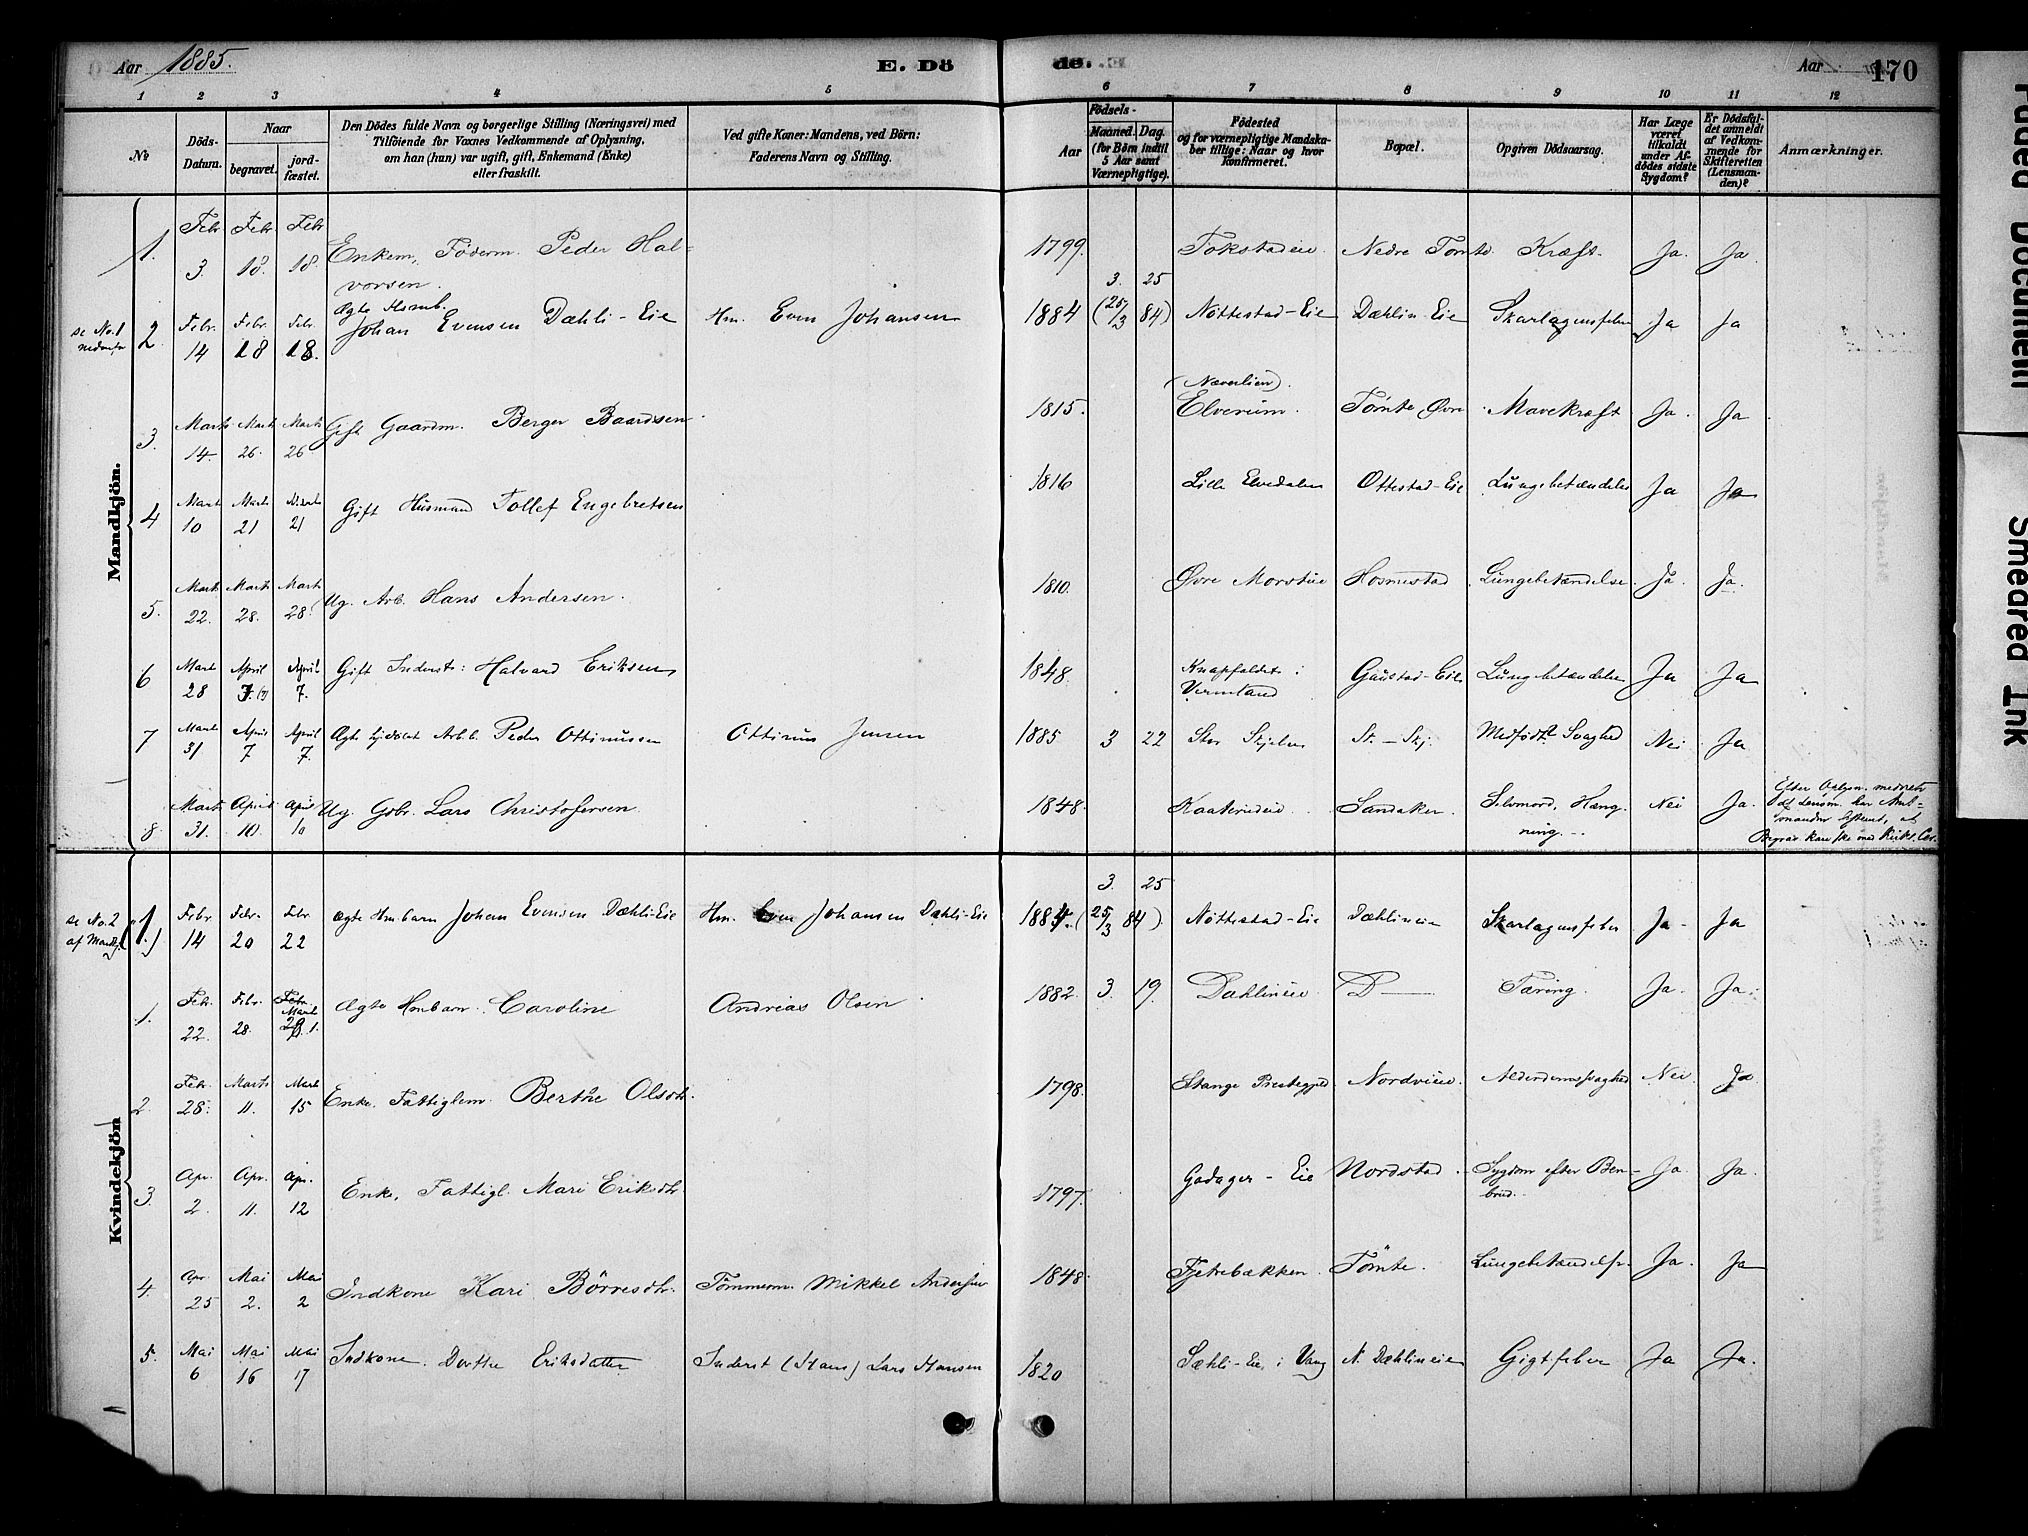 Aar 1885. E. Dö de. E. Aar 170
1 2 3 4 5 6 7 8 9 10 11 12
№ Döds-Datum. Naar begravet. jord-fæstet. Den Dödes fulde Navn og borgerlige Stilling (Næringsvei) med Tilföiende for Voxnes Vedkommende af Oplysning, om han (hun) var ugift, gift, Enkemand (Enke) eller fraskilt. Ved gifte Koner: Mandens, ved Börn: Faderens Navn og Stilling. Födsels- Aar Maaned. Dag. (for Börn indtil 5 Aar samt Værnepligtige). Födested og for værnepligtige Mandskaber tillige: Naar og hvor konfirmeret. Bopæl. Opgiven Dödsaarsag. Har Læge været tilkaldt under Afdödes sidste Sygdom? Er Dödsfaldet anmeldt af Vedkommende for Skifteretten (Lensmanden)? Anmærkninger.
Mandkjön.
1. Febr 3. Febr. 18. Febr 18. Enkem. Föderm. Peder Halvorsen. 1799. Tokstadeie. Nedre Tomte. Kræft. Ja. Ja.
se No. 1 nedenfor 2 Febr. 14 Febr. 18 Febr. 18. Ægte Hsmb. Johan Evensen Dæhli-Eie Hm. Even Johansen 1884 3. 25 (25/3 84) Nöttestad-Eie Dæhlin-Eie Skarlagensfeber Ja Ja
3 Marts 14. Marts 26. Marts 26 Gift Gaardm. Berger Baardsen. 1815. (Næverlien). Elverum. Tomte Övre Mavekræft Ja. Ja.
4 Marts 10 Marts 21 Marts 21 Gift Husmand Tollef Engebretsen 1816 Lille Elvedalen Ottestad-Eie Lungebetændelse Ja Ja
5. Marts 22. Marts 28. Marts 28. Ug. Arb. Hans Andersen. 1810. Övre Morstue Hosmestad Lungebetændelse. Ja. Ja.
6 Marts 28 April 7. (?) April 7. Gift Inderst: Halvard Eriksen 1848. Knapfaldet i Vermland Gaustad-Eie Lungebetændelse Ja Ja
7 Marts 31 April 7 April 7. Ægte Arbb. Peder Ottinussen Ottinus Jensen 1885 3 22 Stor Skjelve St.-Skj. Medfödt Svaghed Nei Ja
8 Marts 31. April 10. April 10 Ug. Gbr. Lars Christofersen. 1848. Sandaker. Selvmord, Hængning. Nei Ja.
Kvindekjön
se No. 2 af Mandkj. (1.) Febr. 14 Febr. 20 Febr 22 Ægte Hmbarn Johan Evensen Dæhli-Eie Hm. Even Johansen Dæhli-Eie 1884. 3. 25 (25/3 84) Nöttestad-Eie Dæhlineie Skarlagensfeber Ja. Ja
1. Febr. 22. Febr. 28. Febr. Marts 1. Ægte Hmbarn. Caroline Andreas Olsen 1882. 3. 19. Dæhlineie D— Tæring. Ja. Ja.
2. Febr. 28. Marts 11. Marts 15 Enke. Fattiglem. Berthe Olsdtr. 1798. Stange Prestegjd Nordvieie. Alderdomssvaghed Nei. Ja
3 Apr. 2. Apr. 11. Apr. 12 Enke, Fattigl. Mari Eriksdtr. 1797. Gadager-Eie Nordstad. Sygdom efter Benbrud. Ja. Ja.
4. Apr. 25 Mai 2. Mai 2 Indkone Kari Börresdtr. Tömmerm. Mikkel Andersen 1848. Fjetrebækken Tomte. Lungebetændelse. Ja. Ja
5. Mai 6 Mai 16 Mai 17 Indkone. Dorthe Eriksdatter Inderst (Hans) Lars Hansen 1820 Sæhli-Eie i Vang N. Dæhlineie Gigtfeber Ja Ja.
Faded Document
Smeared Ink